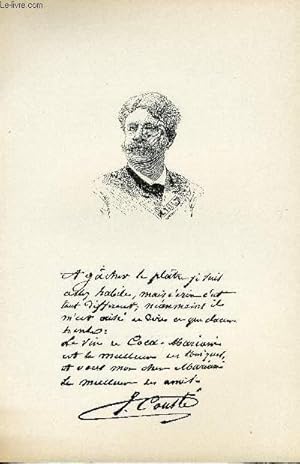 Le-livre.com
A gâcher le plâtre je suis
assez habile, mais écrire c'est
tout différent, néanmoins il
m'est aisé de dire ce que chacun
Le vin de Coca-Mariani
est le meilleur des toniques,
et vous mon cher Mariani
le meilleur des amis.
J. Coutté